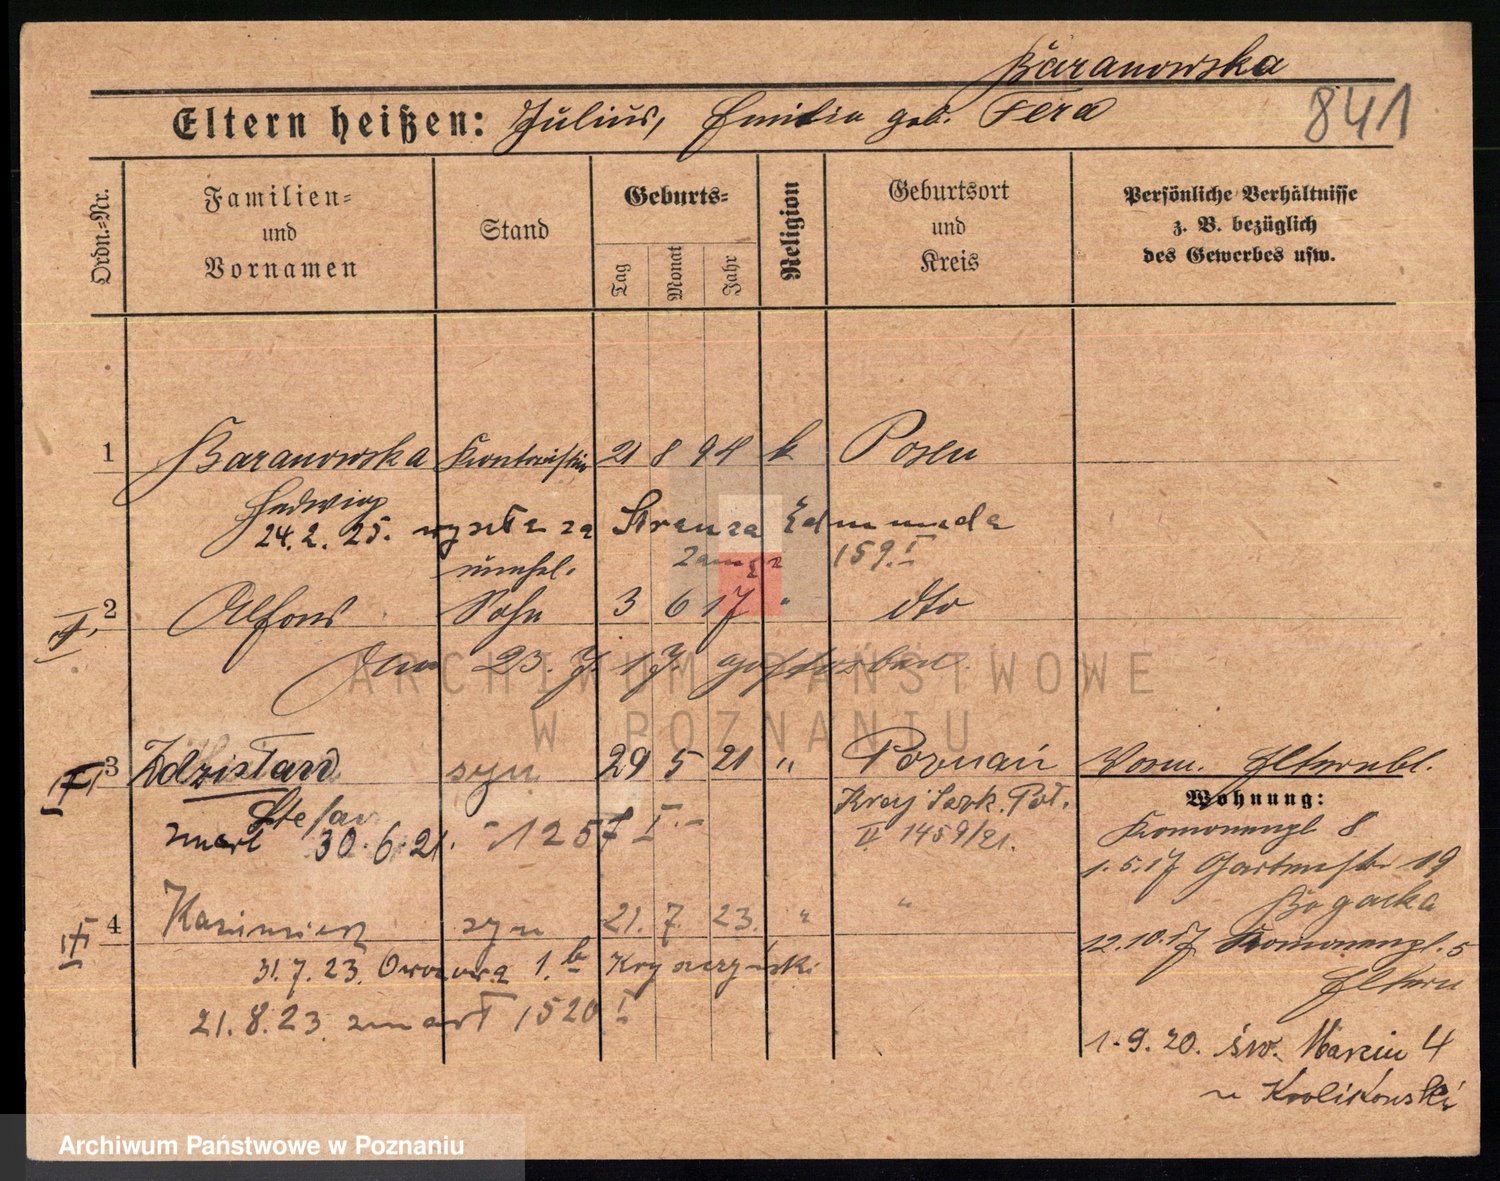 Baranowska
Eltern heißen: Julius, Emilia geb. Fera
841
Ordn.-Nr.
Familien- und Vornamen
Stand
Geburts-
Tag
Monat
Jahr
Religion
Geburtsort und Kreis
Persönliche Verhältnisse z. B. bezüglich des Gewerbes usw.
1 Baranowska Kontoristin 21 8 94 k Posen
Hedwig
24.2.25. wyszła za Edmunda
unehel. 159.I
2 Alfons Sohn 3 6 17 " dto
Am 23.7.17 gestorben.
3 Zdzisław syn 29 5 21 " Poznań
Stefan
zmarł 30.6.21. - 1257 I. -
II 1459/21.
Vorm. Elternbl.
Wohnung:
8
1.5.17 Gartenstr. 19
Bogacka
4 Kazimierz syn 21. 7. 23. " "
12.10.17 5
Eltern
31.7.23. 1.b
21.8.23. zmarł 1520 I
1.9.20. św. Marcin 4
u Krolikowski
ARCHIWUM PAŃSTWOWE
W POZNANIU
Archiwum Państwowe w Poznaniu